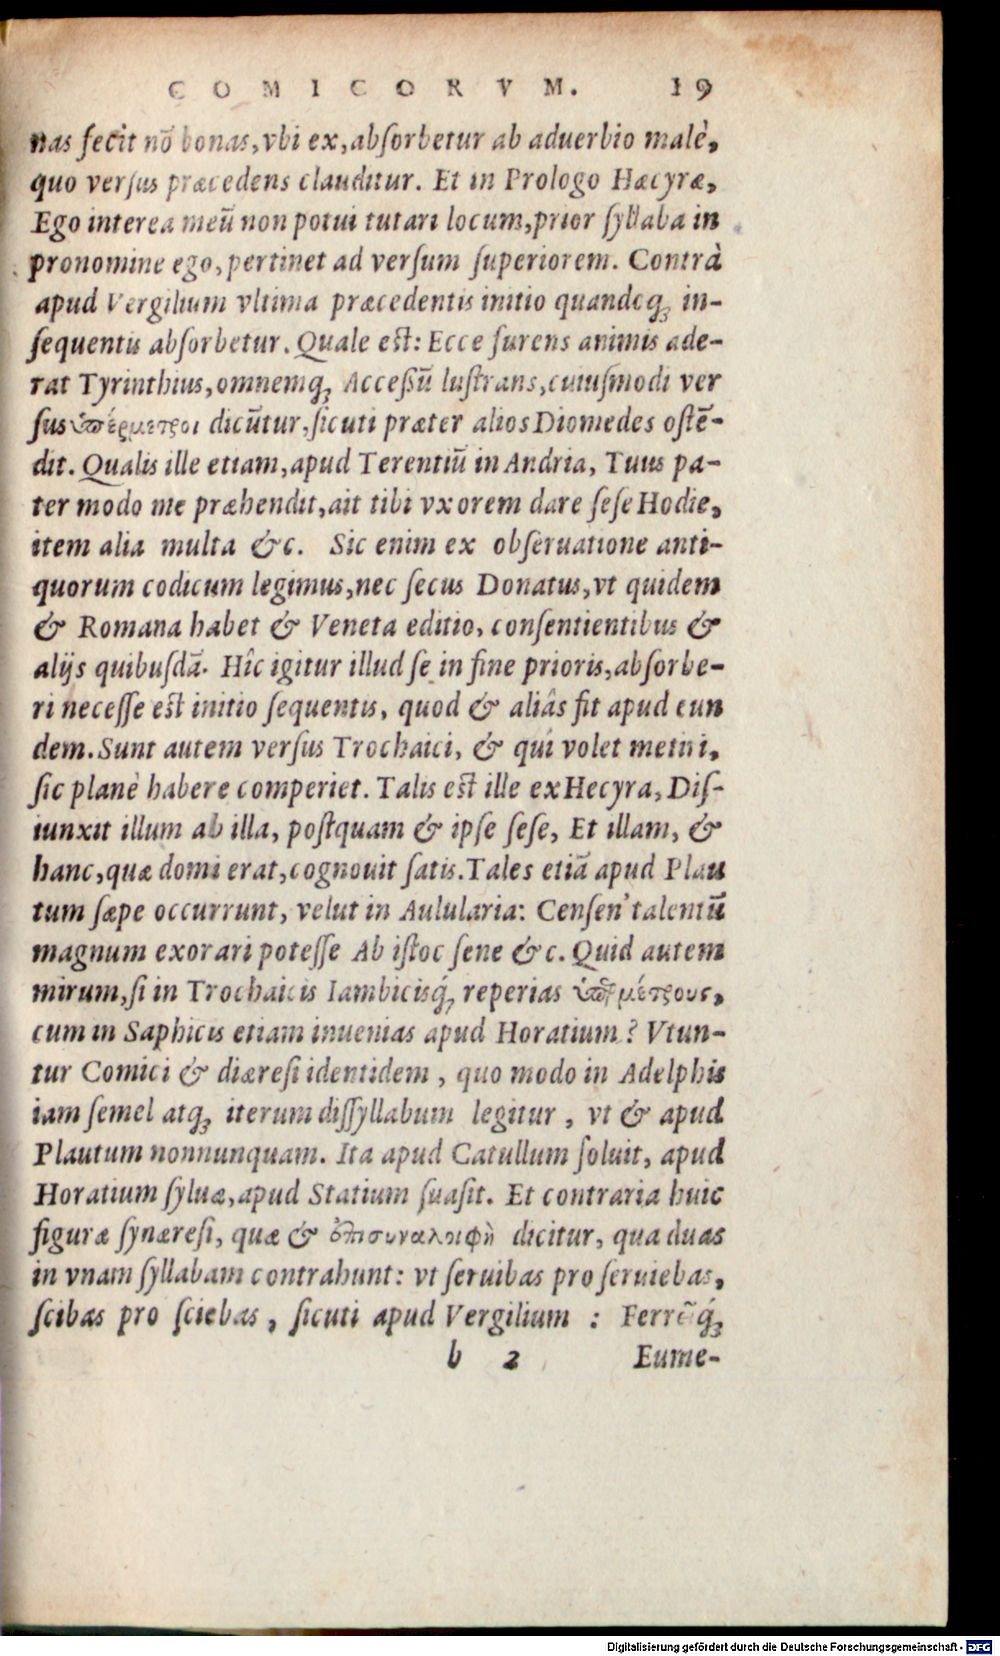 COMICORVM. 19
nas fecit nõ bonas, vbi ex, abſorbetur ab aduerbio malè,
quo verſus præcedens clauditur. Et in Prologo Hæcyræ,
Ego interea meũ non potui tutari locum, prior ſyllaba in
pronomine ego, pertinet ad verſum ſuperiorem. Contrà
apud Vergilium vltima præcedentis initio quandoqꝫ in-
ſequentis abſorbetur. Quale eſt: Ecce furens animis ade-
rat Tyrinthius, omnemqꝫ Acceſſũ luſtrans, cuiuſmodi ver
ſus ὑπέρμετροι dicũtur, ſicuti præter alios Diomedes oſtẽ-
dit. Qualis ille etiam, apud Terentiũ in Andria, Tuus pa-
ter modo me præhendit, ait tibi vxorem dare ſeſe Hodie,
item alia multa &c. Sic enim ex obſeruatione anti-
quorum codicum legimus, nec ſecus Donatus, vt quidem
& Romana habet & Veneta editio, conſentientibus &
alijs quibuſdã. Hîc igitur illud ſe in fine prioris, abſorbe-
ri neceſſe eſt initio ſequentis, quod & aliâs fit apud eun
dem. Sunt autem verſus Trochaici, & qui volet metiri,
ſic planè habere comperiet. Talis eſt ille ex Hecyra, Diſ-
iunxit illum ab illa, poſtquam & ipſe ſeſe, Et illam, &
hanc, quæ domi erat, cognouit ſatis. Tales etiã apud Plau
tum ſæpe occurrunt, velut in Aulularia: Cenſen' talentũ
magnum exorari poteſſe Ab iſtoc ſene &c. Quid autem
mirum, ſi in Trochaicis Iambicisq́ꝫ reperias ὑπερμέτρους,
cum in Saphicis etiam inuenias apud Horatium? Vtun-
tur Comici & diæreſi identidem, quo modo in Adelphis
iam ſemel atqꝫ iterum diſſyllabum legitur, vt & apud
Plautum nonnunquam. Ita apud Catullum ſoluit, apud
Horatium ſyluæ, apud Statium ſuaſit. Et contraria huic
figuræ ſynæreſi, quæ & ἐπισυναλοιφὴ dicitur, qua duas
in vnam ſyllabam contrahunt: vt ſeruibas pro ſeruiebas,
ſcibas pro ſciebas, ſicuti apud Vergilium: Ferrẽq́ꝫ
b 2 Eume-
Digitalisierung gefördert durch die Deutsche Forschungsgemeinschaft - DFG